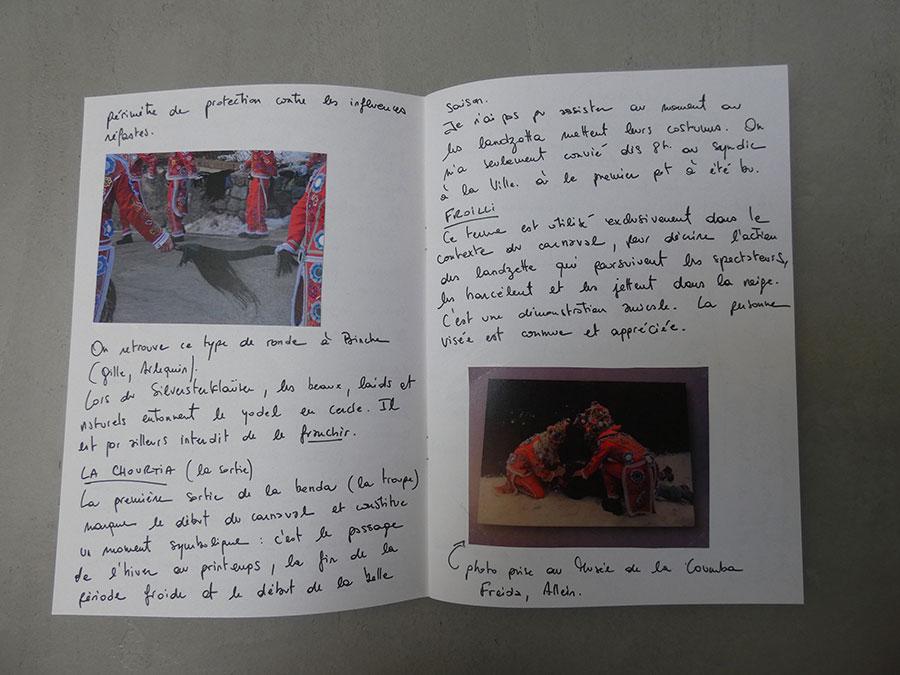 périmètre de protection contre les influences
néfastes.
On retrouve ce type de ronde à Binche
(Gille, Arlequin).
Lors du Silversterkläüse, les beaux, laids et
naturels entonnent le yodel en cercle. Il
est par ailleurs interdit de le franchir.
LA CHOURTIA (la sortie)
La première sortie de la benda (la troupe)
marque le début du carnaval et constitue
un moment symbolique : c'est le passage
de l'hiver au printemps, la fin de la
période froide et le début de la belle
saison.
Je n'ai pas pu assister au moment où
les landzetta mettent leurs costumes. On
m'a seulement convié dès 8h. au Syndic
à la Ville. où le premier pot a été bu.
FROILLI
Ce terme est utilisé exclusivement dans le
contexte du carnaval, pour décrire l'action
des landzette qui poursuivent les spectateurs,
les harcèlent et les jettent dans la neige.
C'est une démonstration amicale. La personne
visée est connue et appréciée.
photo prise au Musée de la Coumba
Freida, Allein.